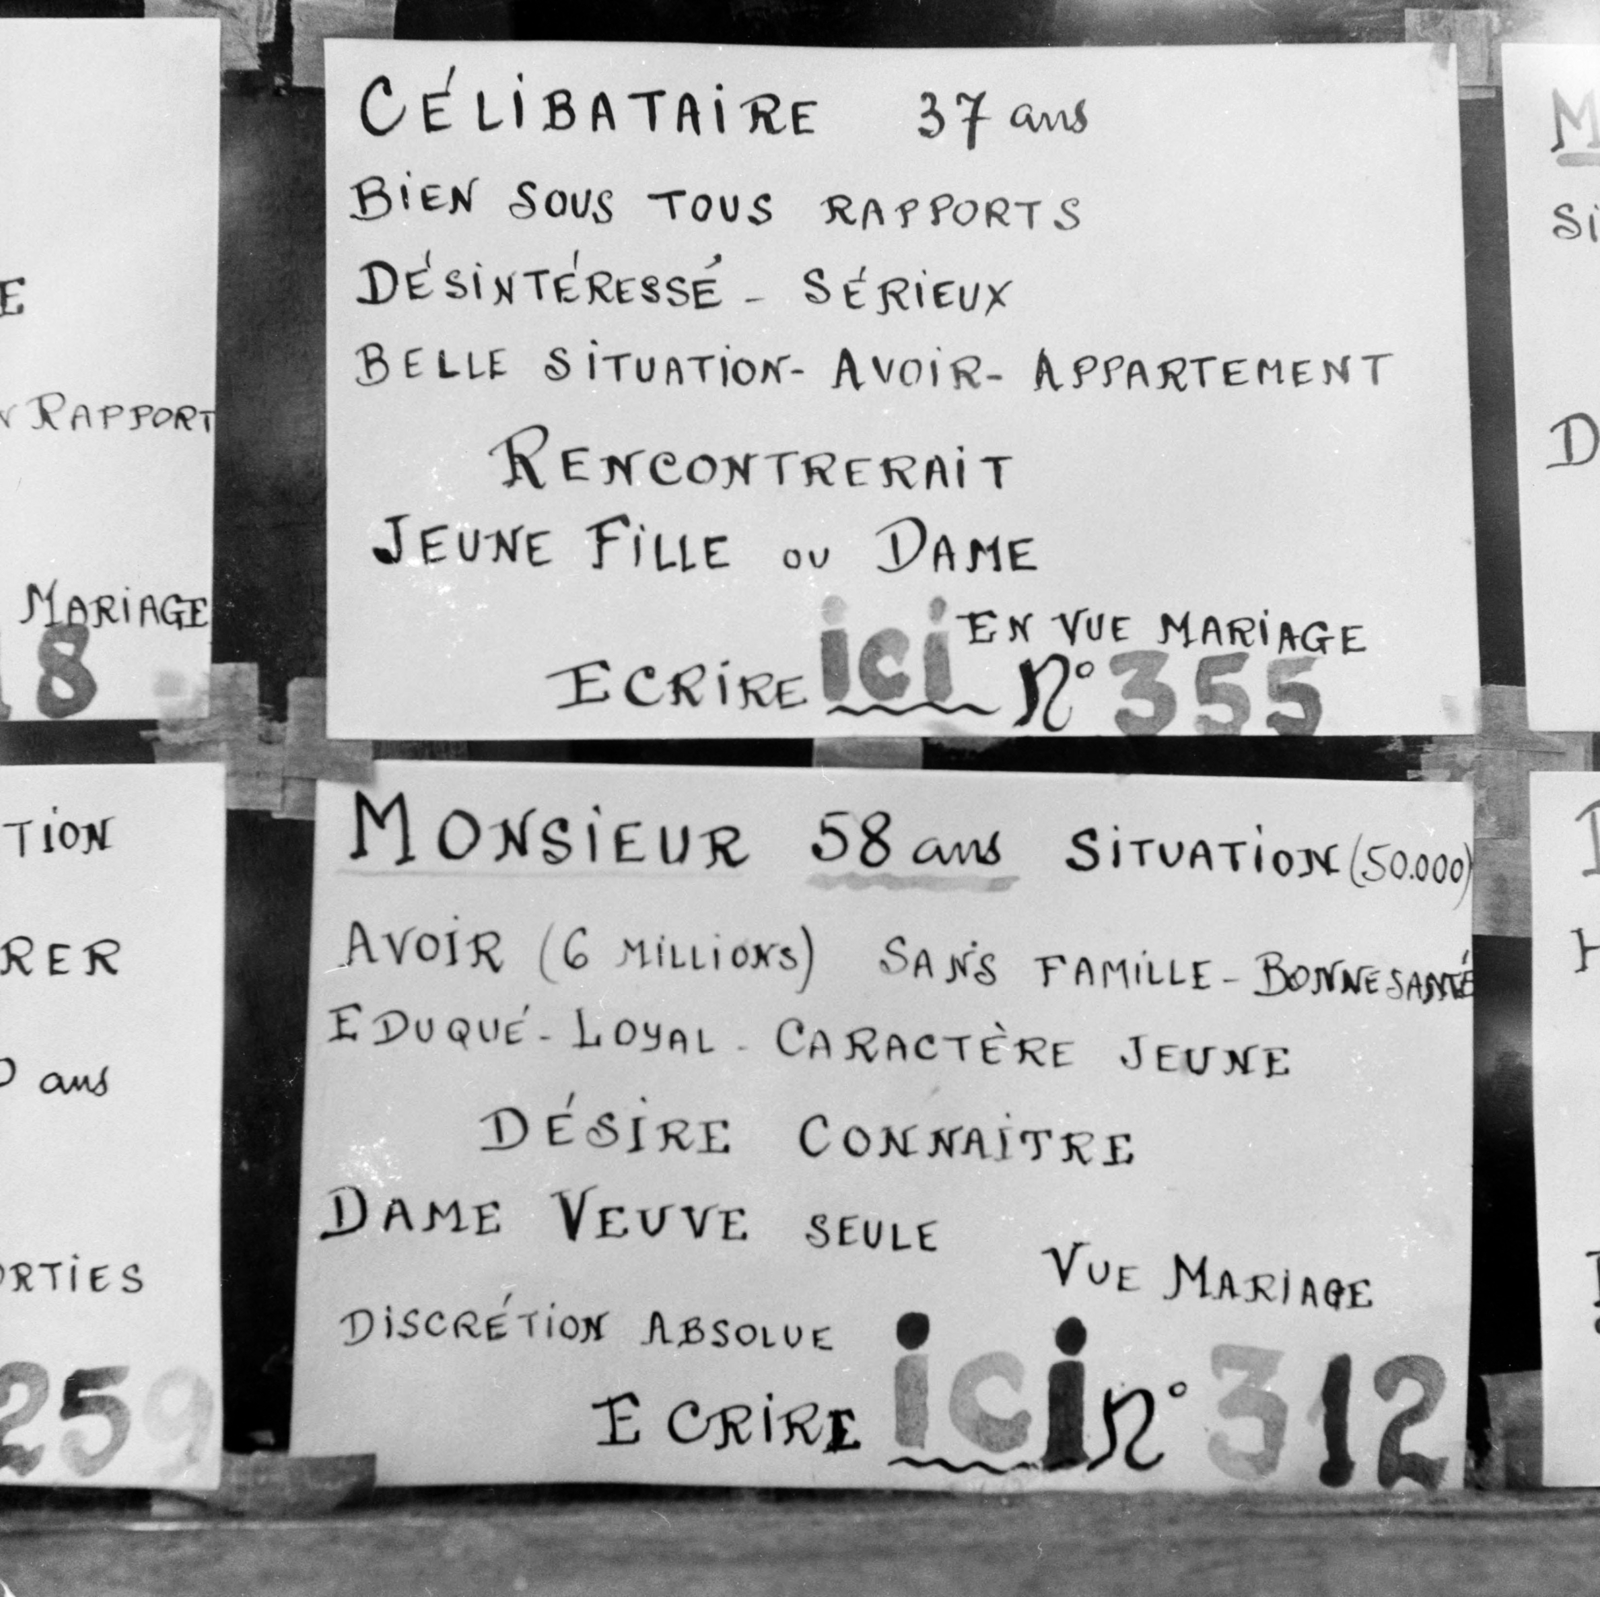 CÉLIBATAIRE 37 ans
BIEN SOUS TOUS RAPPORTS
DÉSINTÉRESSÉ - SÉRIEUX
BELLE SITUATION - AVOIR - APPARTEMENT
RENCONTRERAIT
JEUNE FILLE OU DAME
EN VUE MARIAGE
ECRIRE ici N° 355
MONSIEUR 58 ans SITUATION (50.000)
AVOIR (6 MILLIONS) SANS FAMILLE - BONNE SANTÉ
EDUQUÉ - LOYAL - CARACTÈRE JEUNE
DÉSIRE CONNAITRE
DAME VEUVE SEULE
VUE MARIAGE
DISCRÉTION ABSOLUE
ECRIRE ici N° 312
E
N RAPPORT
MARIAGE
8
TION
RER
ans
ORTIES
259
M
Si
D
H